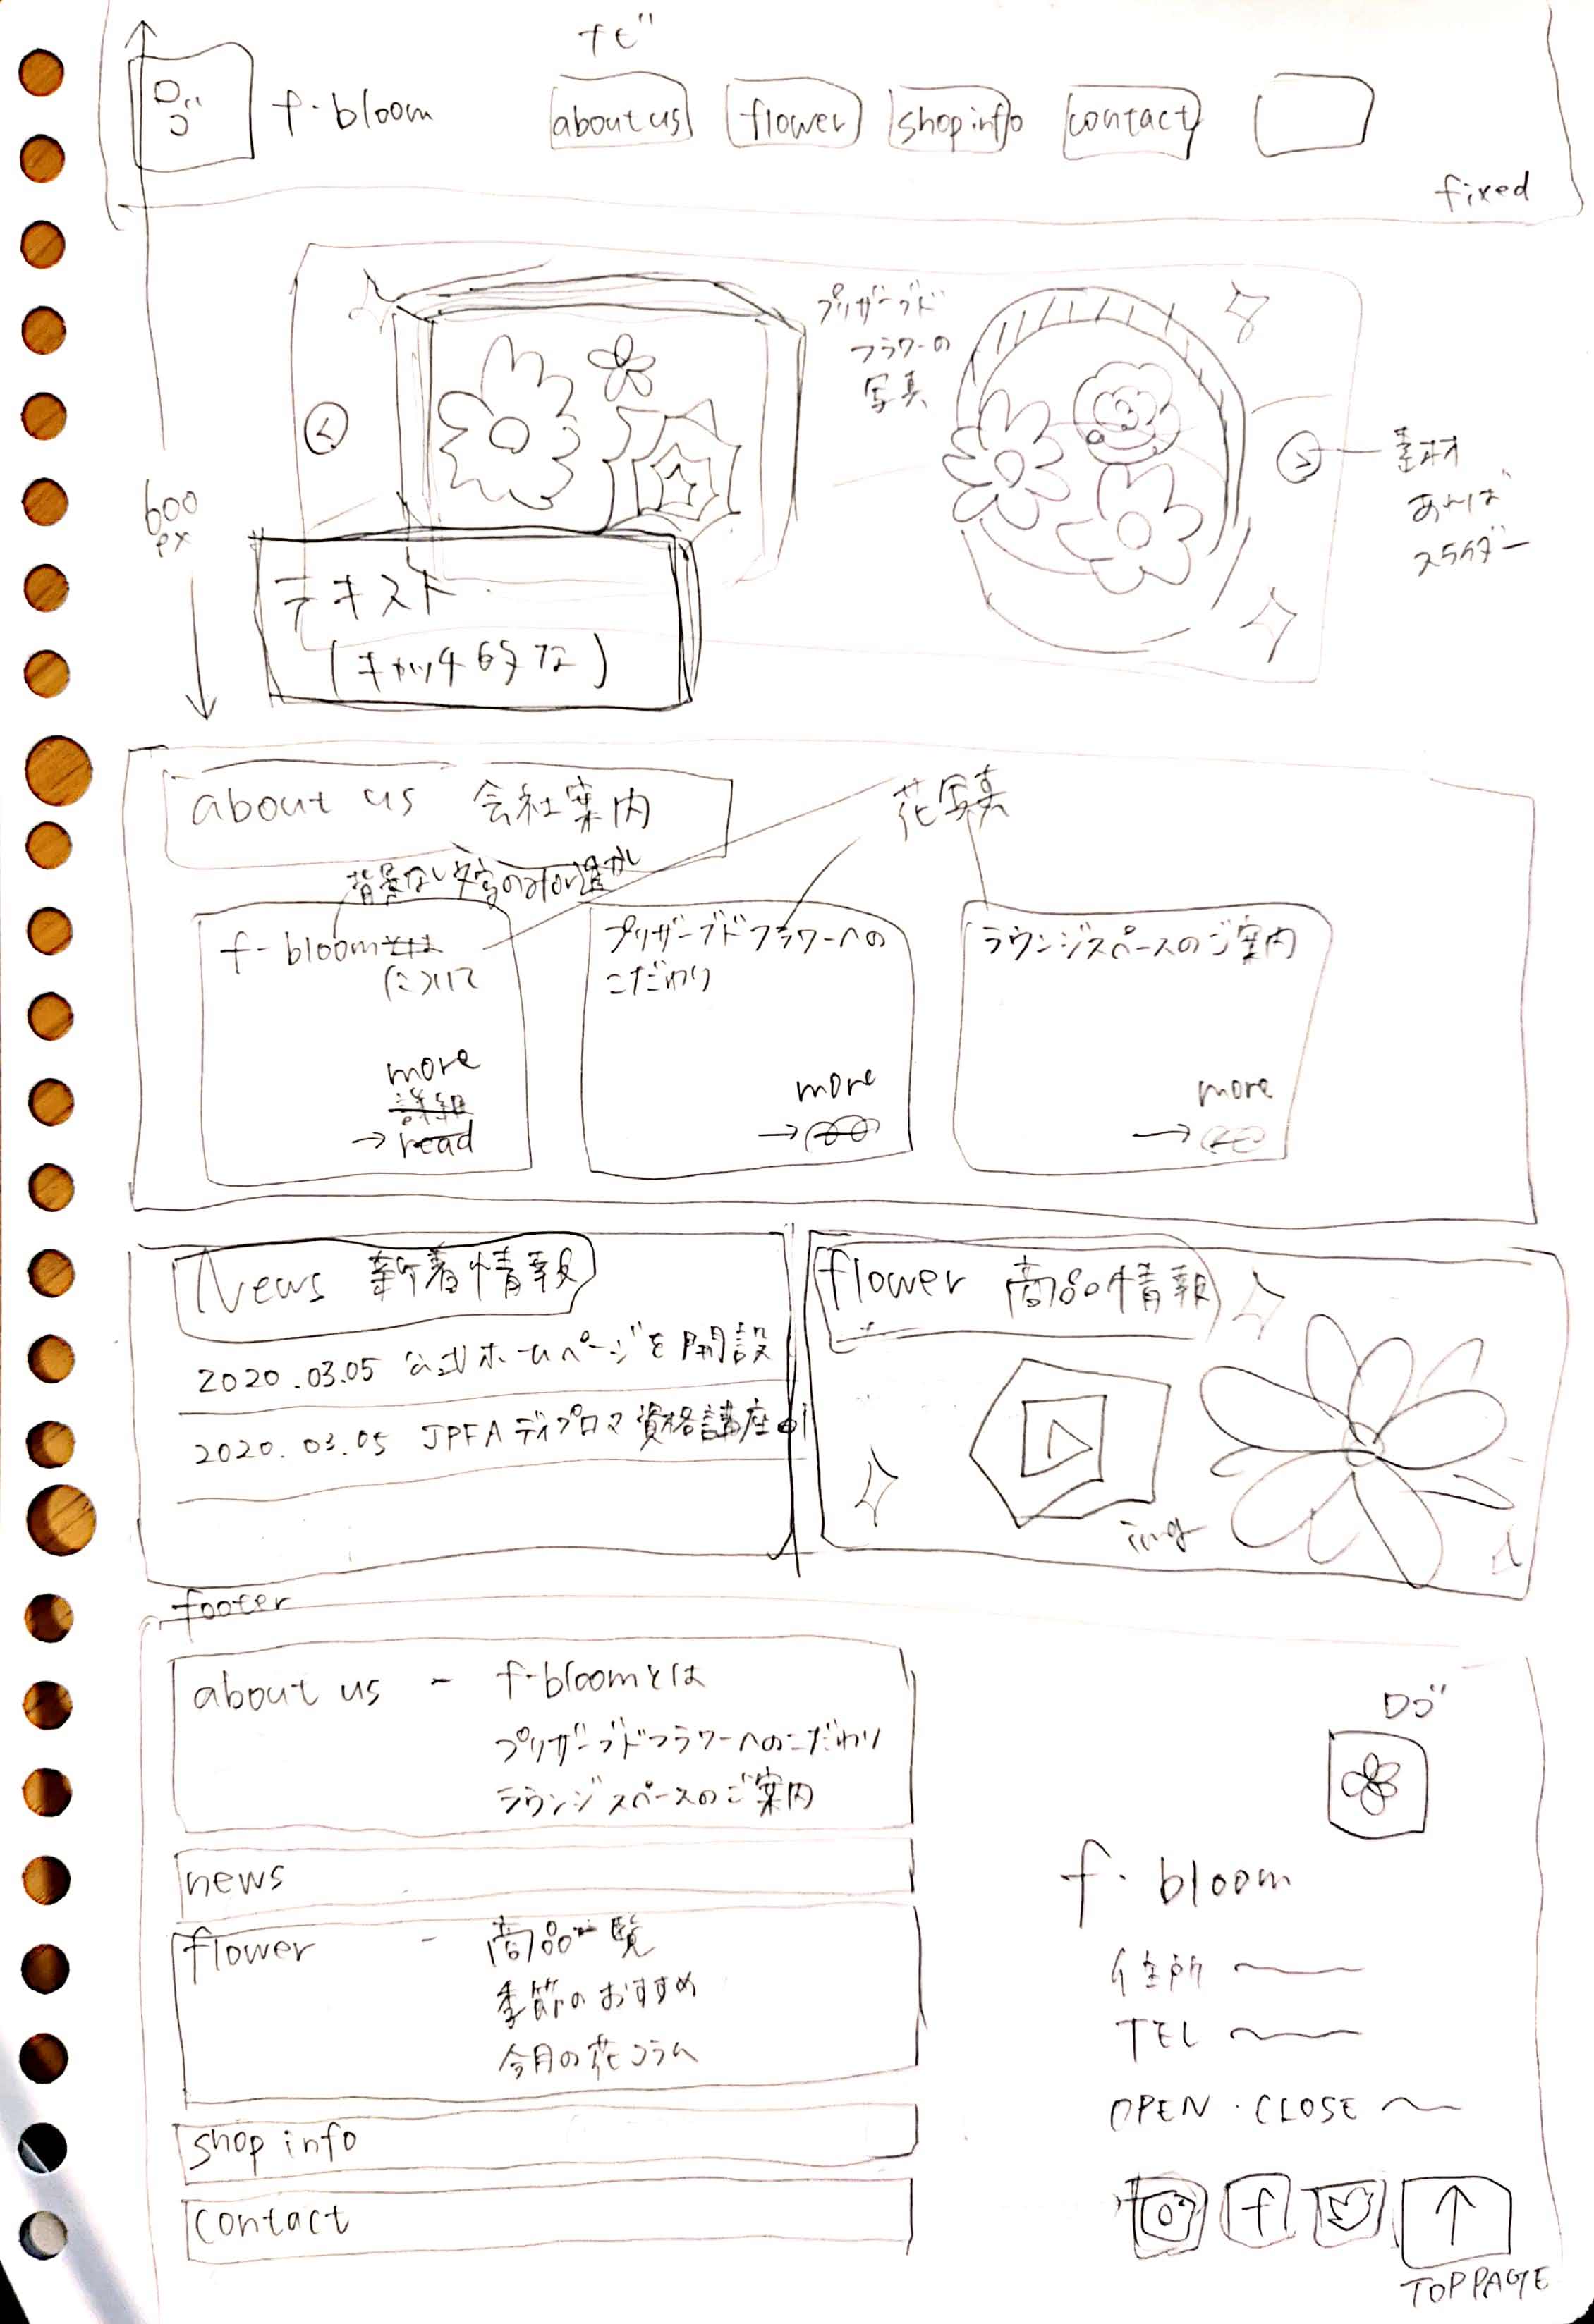 ナビ
ロゴ
f・bloom
about us
flower
shop info
contact
fixed
プリザーブド
フラワーの
写真
素材
あれば
スライダー
600
px
テキスト
(キャッチ的な)
about us 会社案内
花写真
f-bloomとは
について
more
詳細
→ read
プリザーブドフラワーへの
こだわり
more
→
ラウンジスペースのご案内
more
→
News 新着情報
2020.03.05 公式ホームページを開設
2020.03.05 JPFAディプロマ資格講座
flower 商品情報
img
footer
about us - f-bloomとは
プリザーブドフラワーへのこだわり
ラウンジスペースのご案内
news
flower - 商品一覧
季節のおすすめ
今月の花コラム
shop info
contact
ロゴ
f・bloom
住所
TEL
OPEN・CLOSE
f
↑
TOPPAGE